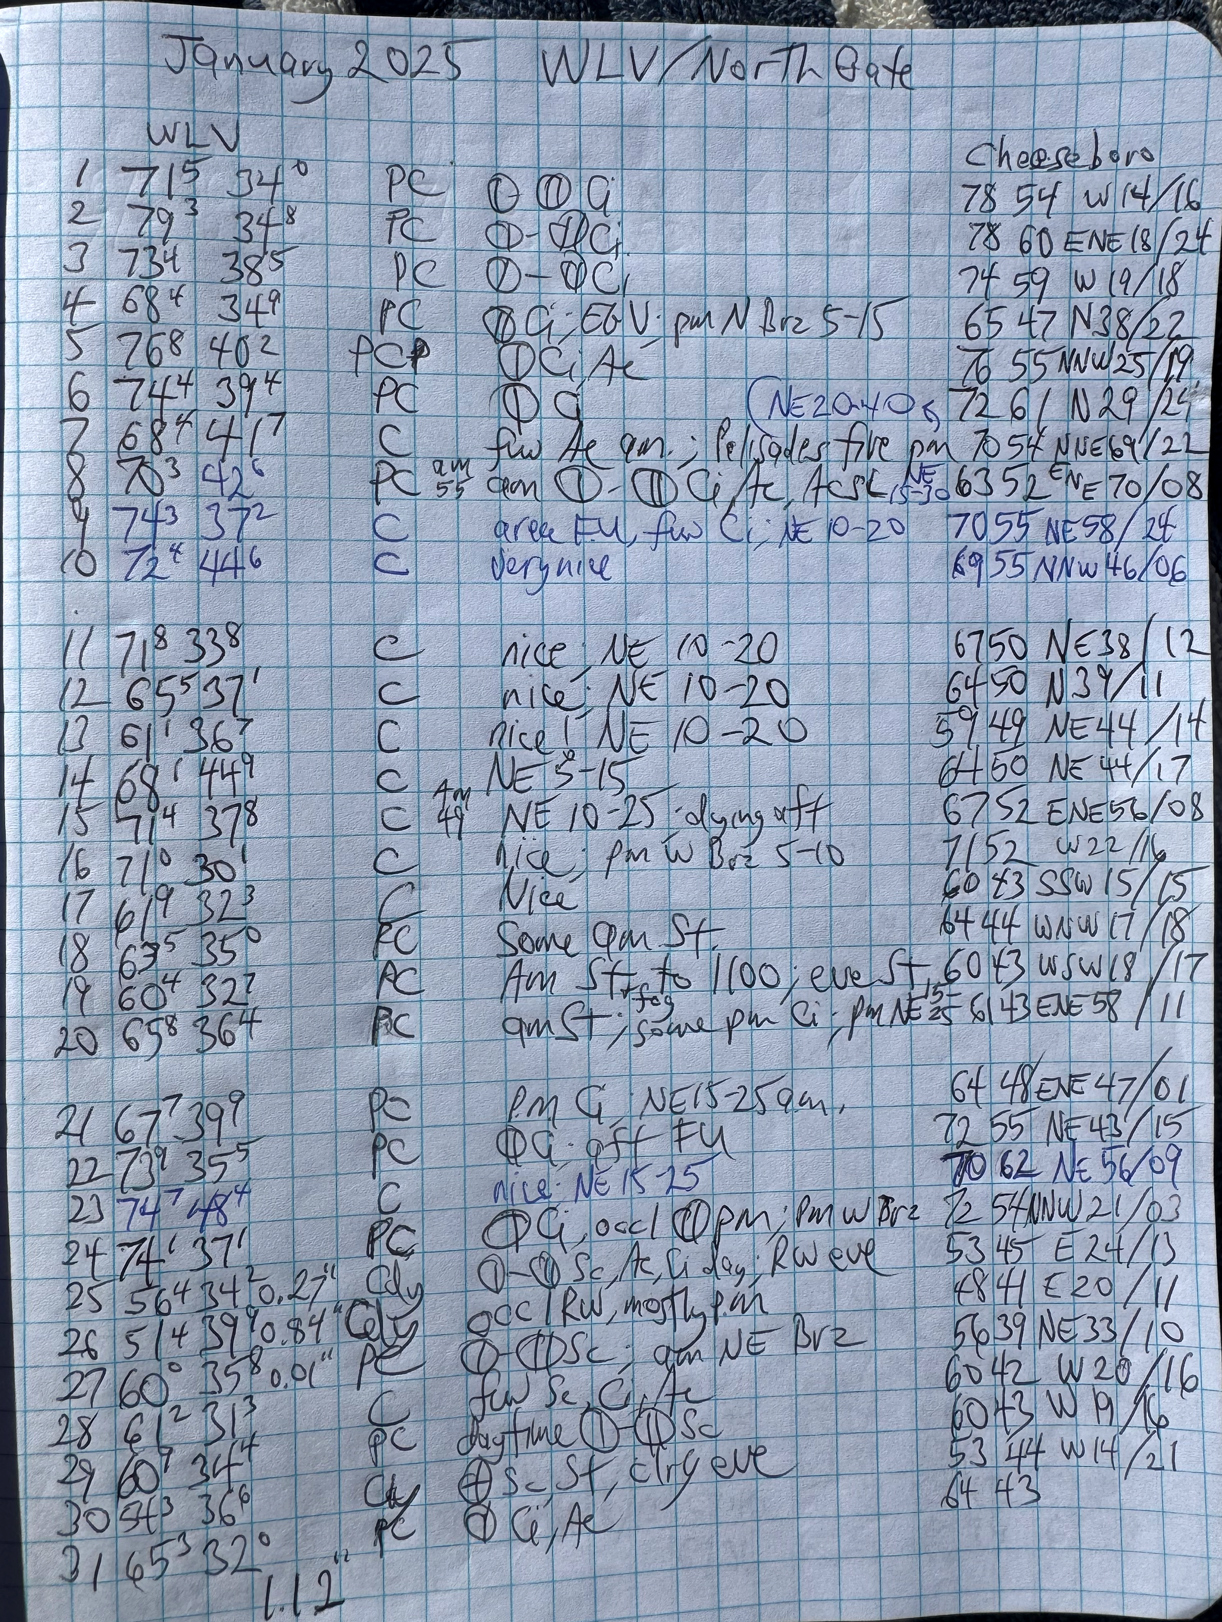 January 2025 WLV/North Gate
WLV Cheeseboro
1 71⁵ 34⁰ PC ⦶ ⦶ Ci 78 54 W14/16
2 79³ 34⁸ PC ⦶-⦶Ci 78 60 ENE18/24
3 73⁴ 38⁵ PC ⦶-⦶Ci 74 59 W19/18
4 68⁴ 34⁹ PC ⦶Ci; EGV; pm N Brz 5-15 65 47 N38/22
5 76⁸ 40² PC ⦶Ci, Ac 76 55 NNW25/19
6 74⁴ 39⁴ PC ⦶ Ci (NE20-40s 72 61 N29/24
7 68⁴ 41⁷ C few Ac am.; Palisades fire pm 70 54 NNE69/22
8 70³ 42⁶ PC am 55 am ⦶-⦶ Ci, Ac, Acsl, NE 15-30 63 52 ENE70/08
9 74³ 37² C area FU, few Ci; NE 10-20 70 55 NE58/24
10 72⁴ 44⁶ C very nice 69 55 NNW46/06
11 71⁸ 33⁸ C nice; NE 10-20 67 50 NE38/12
12 65⁵ 37¹ C nice; NE 10-20 64 50 N39/11
13 61¹ 36⁷ C nice! NE 10-20 59 49 NE44/14
14 68¹ 44⁹ C NE 5-15 64 50 NE44/17
15 71⁴ 37⁸ C Am 49 NE 10-25 dying aft 67 52 ENE56/08
16 71⁰ 30¹ C nice; pm W Brz 5-10 71 52 W22/16
17 61⁹ 32³ C Nice 60 43 SSW15/15
18 63⁵ 35⁰ PC Some am St. 64 44 WNW17/18
19 60⁴ 32⁷ PC Am St, fog to 1100; eve St, 60 43 WSW18/17
20 65⁸ 36⁴ PC am St; some pm Ci; pm NE 15-25 61 43 ENE58/11
21 67⁷ 39⁹ PC pm Ci; NE15-25 am. 64 48 ENE47/01
22 73⁹ 35⁵ PC ⦶Ci; aft FU 72 55 NE43/15
23 74⁷ 48⁴ C nice; NE 15-25 70 62 NE56/09
24 74¹ 37¹ PC ⦶Ci, occl ⦶ pm; pm W Brz 72 54 NNW21/03
25 56⁴ 34² 0.27" Cdy ⦶-⦶Sc, Ac, Ci day; RW eve 53 45 E24/13
26 51⁴ 39⁹ 0.84" Cdy occl RW, mostly pm 48 41 E20/11
27 60⁰ 35⁸ 0.01" PC ⦶-⦶Sc; am NE Brz 56 39 NE33/10
28 61² 31³ C few Sc, Ci, Ac 60 42 W20/16
29 60⁷ 34⁴ PC daytime ⦶-⦶Sc 60 43 W19/16
30 54³ 36⁶ Cdy ⊕Sc, St, clrg eve 53 44 W14/21
31 65³ 32⁰ PC ⦶ Ci, Ac 64 43
1.12"